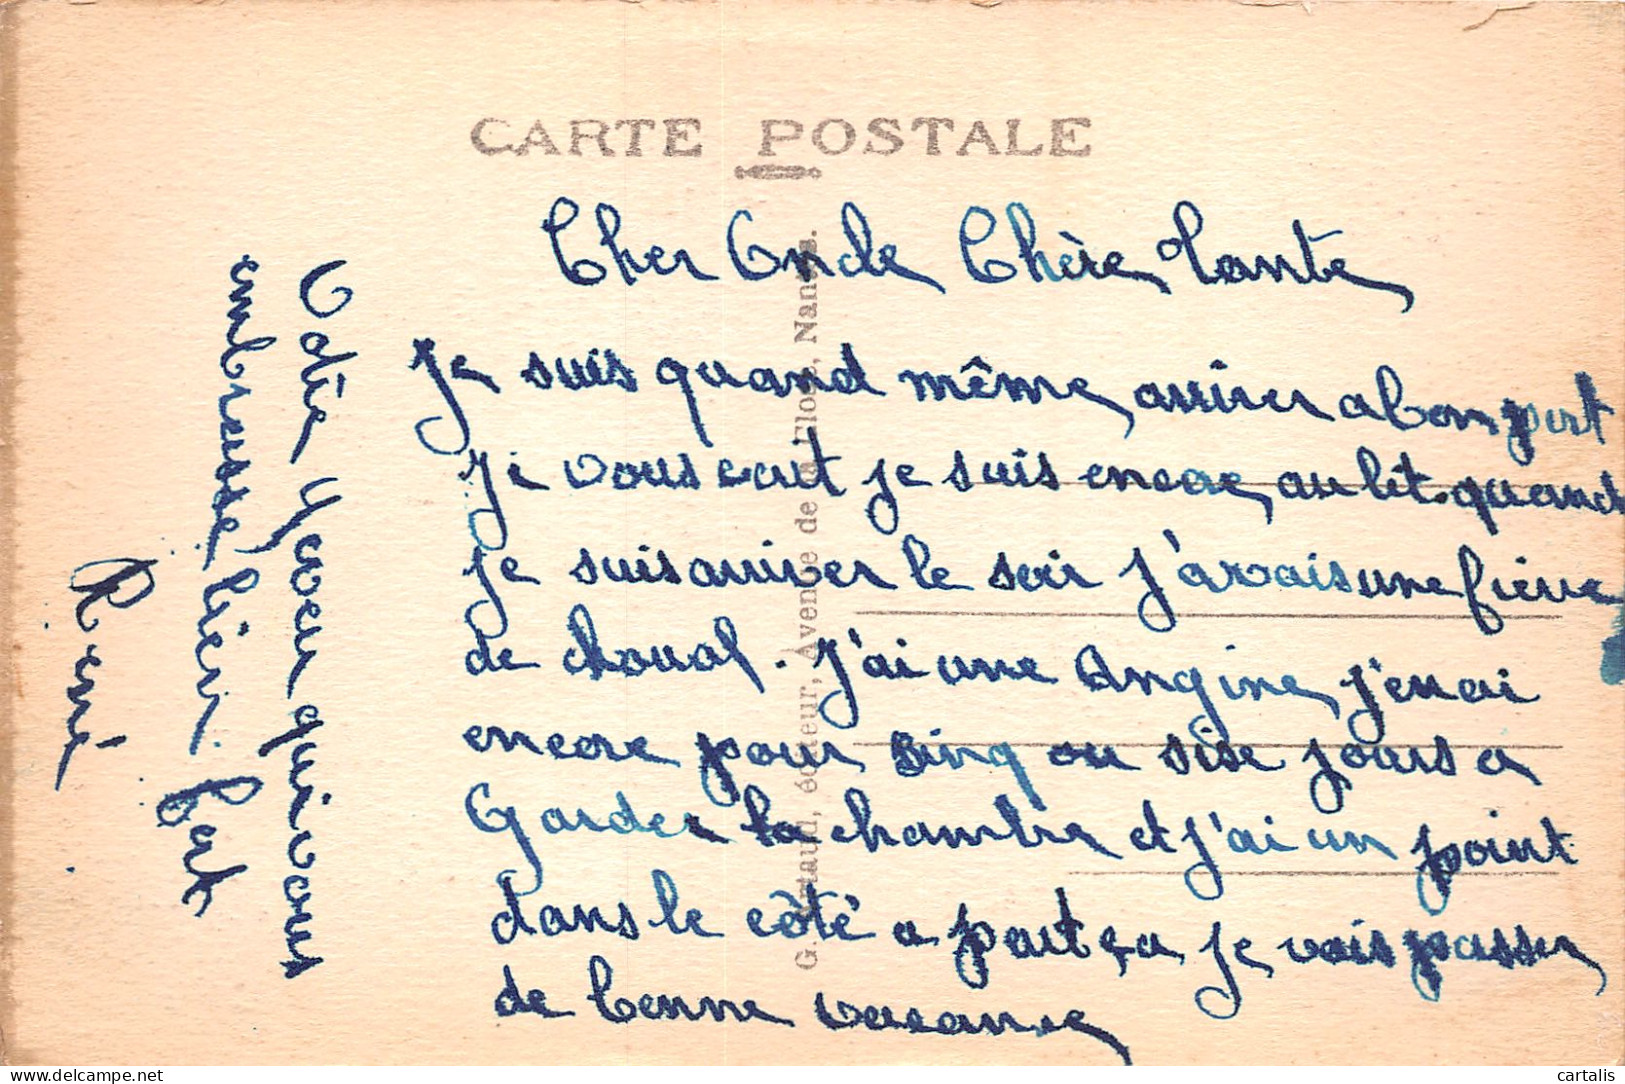 CARTE POSTALE
Cher Oncle Chère Tante
Je suis quand même arriver a bon port
Je vous ecrit je suis encore au lit. quand
je suis arriver le soir j'avais une fievre
de choual. J'ai une Angine j'en ai
encore pour sinq ou sise jours a
Garder la chambre et j'ai un point
dans le côté a part ça je vais passer
de bonne vacance
votre neveu qui vous
embrasse bien fort
René
G. Artaud, éditeur, Avenue de la Close, Nantes.
cartalis